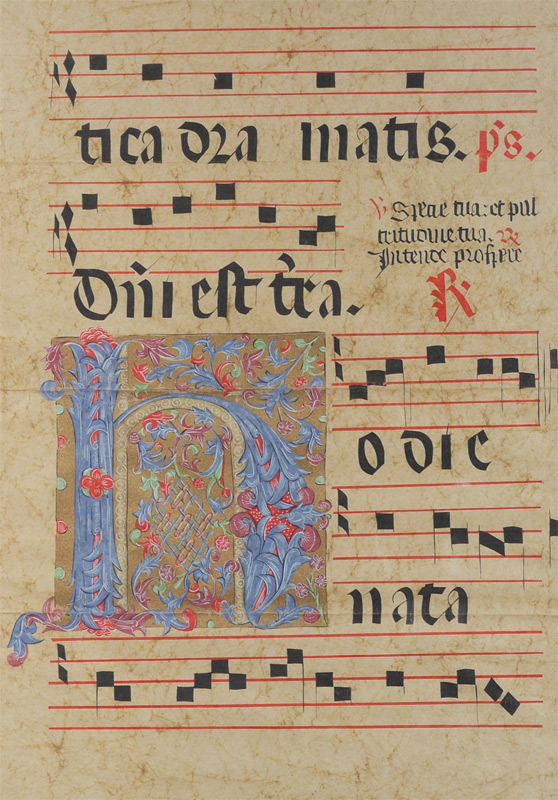 tica dra matis. ps.
Dni est tra.
V Specie tua: et pul
critudine tua. R
Intende prospere
R
Hodie
nata